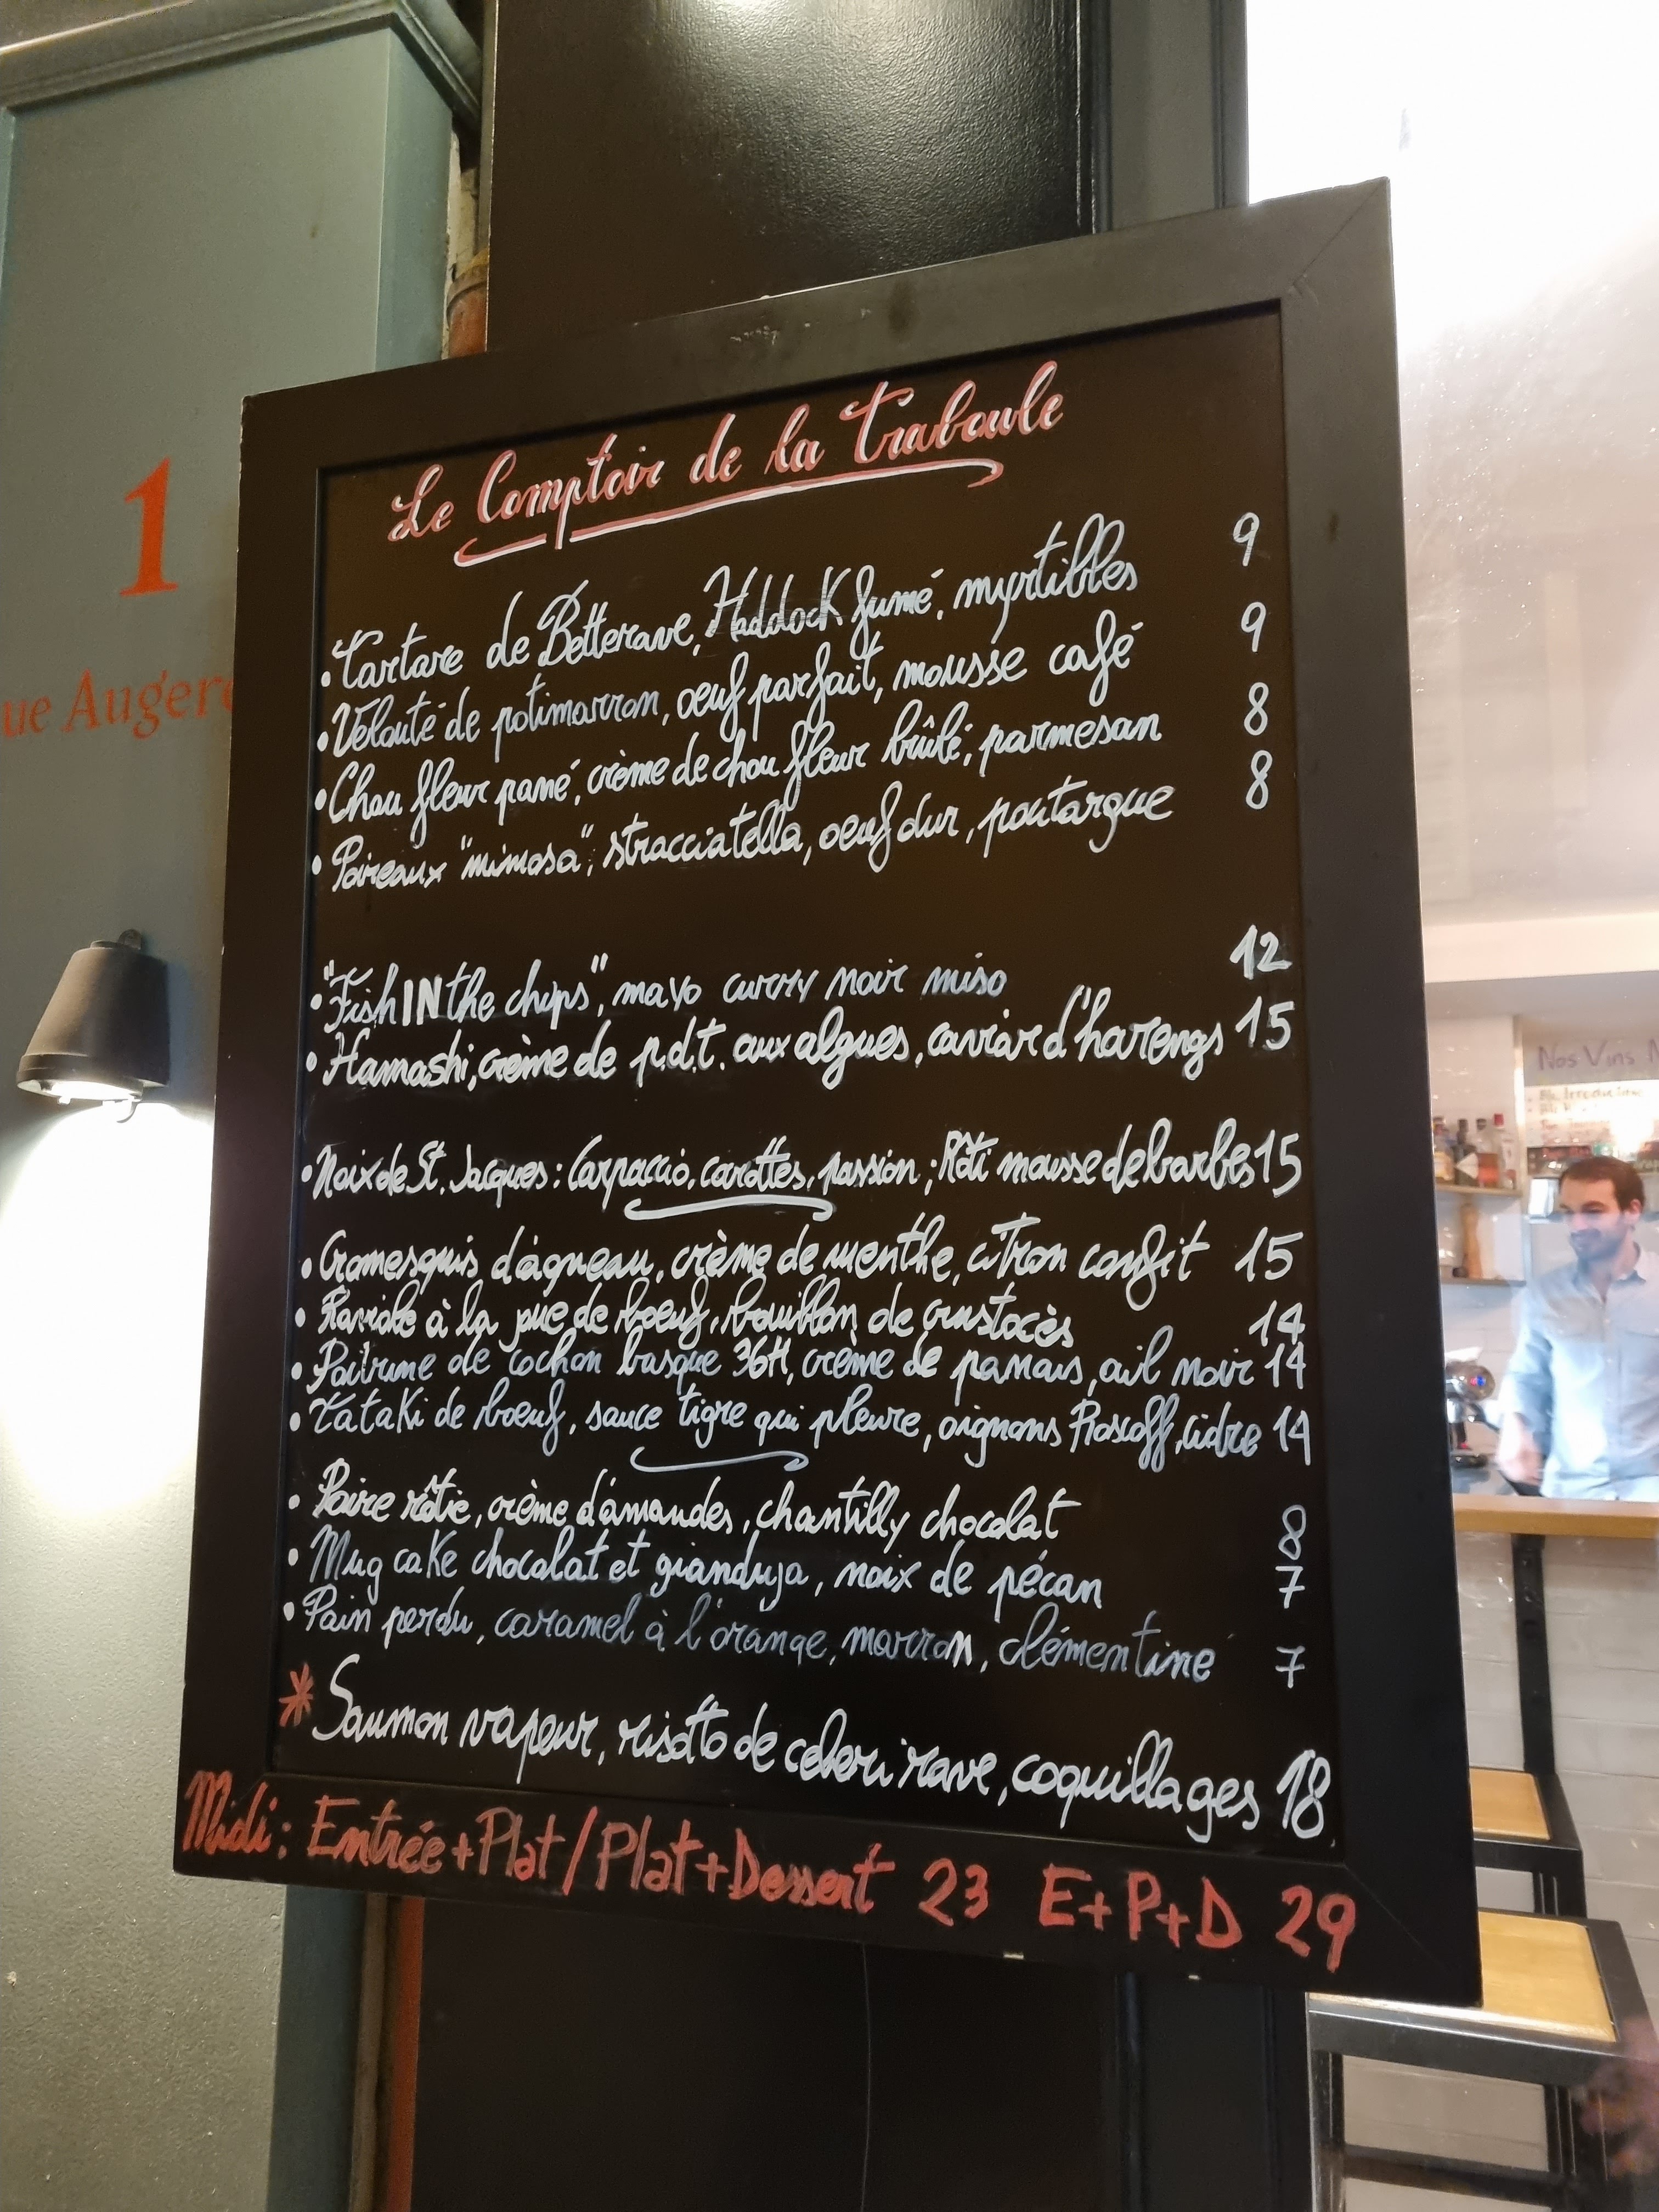 1
ue Augere
Le Comptoir de la Traboule
• Tartare de Betterave, Haddock fumé, myrtilles 9
• Velouté de potimarron, oeuf parfait, mousse café 9
• Chou fleur pané, crème de chou fleur brûlé, parmesan 8
• Poireaux "mimosa", stracciatella, oeuf dur, poutargue 8
• "Fish IN the chips", mayo curry noir miso 12
• Hamashi, crème de p.d.t. aux algues, caviar d'harengs 15
• Noix de St. Jacques : Carpaccio, carottes, passion ; Rôti mousse de barbes 15
• Cromesquis d'agneau, crème de menthe, citron confit 15
• Raviole à la joue de boeuf, bouillon de crustacés 14
• Poitrine de cochon basque 36H, crème de panais, ail noir 14
• Tataki de boeuf, sauce tigre qui pleure, oignons Roscoff, cidre 14
• Poire rôtie, crème d'amandes, chantilly chocolat 8
• Mug cake chocolat et gianduja, noix de pécan 7
• Pain perdu, caramel à l'orange, marron, clémentine 7
* Saumon vapeur, risotto de celeri rave, coquillages 18
Midi : Entrée+Plat/Plat+Dessert 23 E+P+D 29
Nos Vins